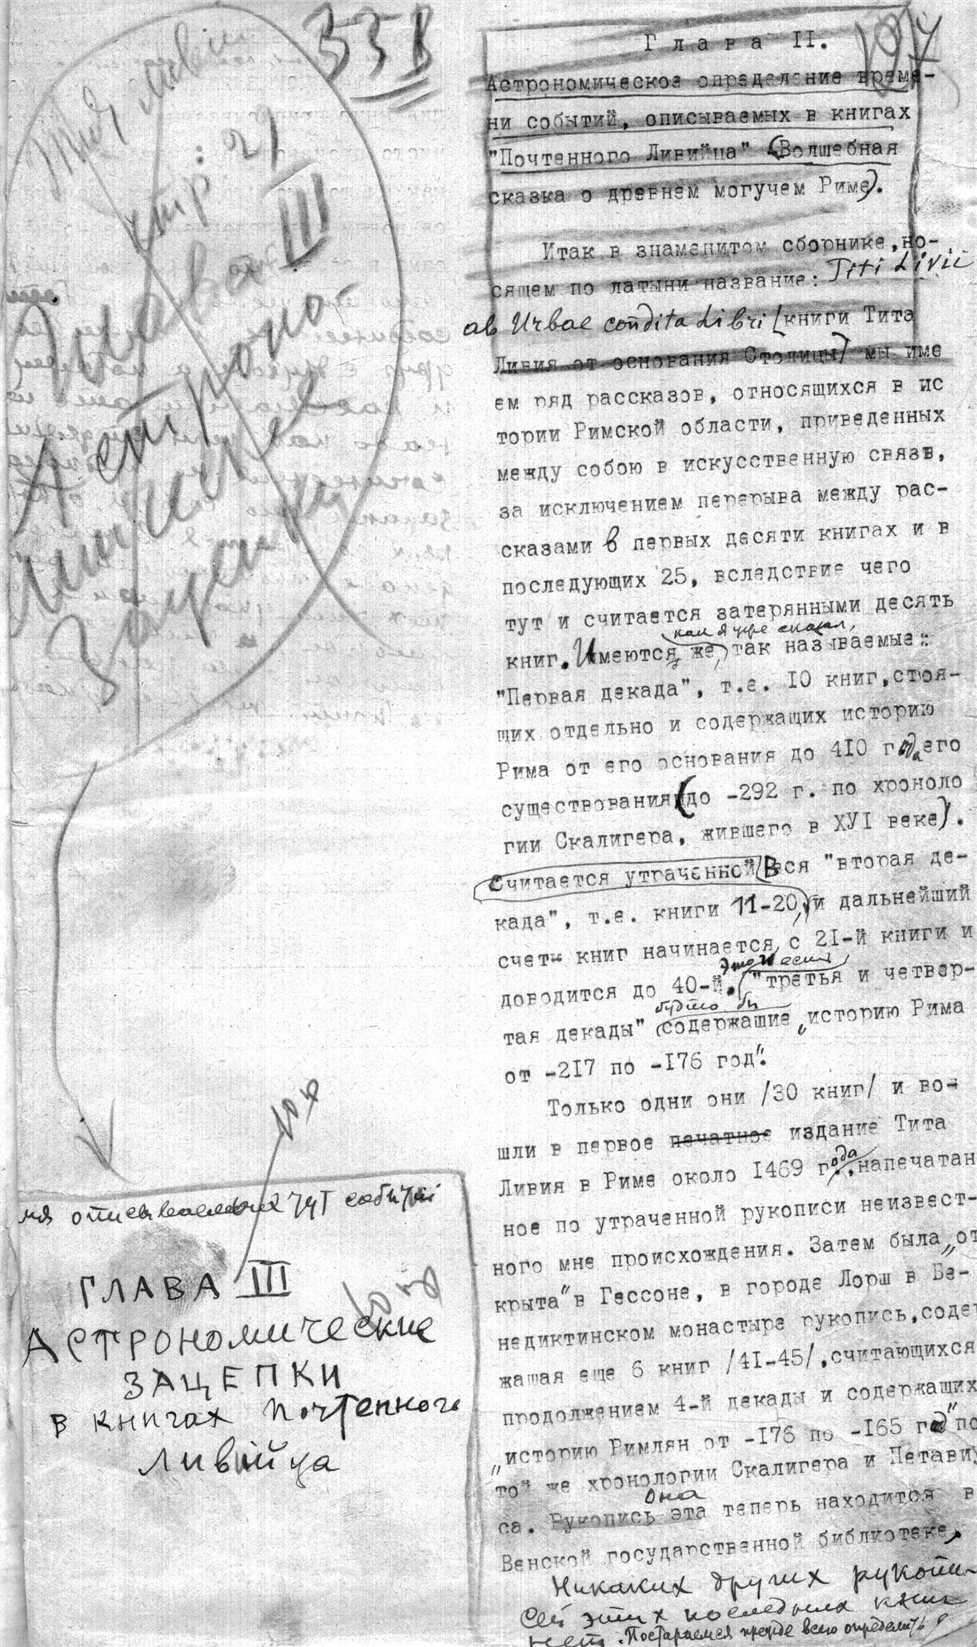 Тит Ливий
стр. 21
Глава III
Астроно-
мические
Зацепки
338
Глава II.
Астрономическое определение време-
ни событий, описываемых в книгах
"Почтенного Ливийца" (Волшебная
сказка о древнем могучем Риме).
Итак в знаменитом сборнике, но-
сящем по латыни название: Titi Livii
ab Urbae condita Libri (книги Тита
Ливия от основания Столицы) мы име
ем ряд рассказов, относящихся в ис
тории Римской области, приведенных
между собою в искусственную связь,
за исключением перерыва между рас-
сказами в первых десяти книгах и в
последующих 25, вследствие чего
тут и считается затерянными десять
как я уже сказал,
книг. Имеются же, так называемые:
"Первая декада", т.е. 10 книг, стоя-
щих отдельно и содержащих историю
Рима от его основания до 410 года его
существования (до -292 г. по хроноло
гии Скалигера, жившего в XVI веке).
Считается утраченной Вся "вторая де-
када", т.е. книги 11-20, и дальнейший
счет книг начинается с 21-й книги и
доводится до 40-й. Это и есть "третья и четвер-
будто бы
тая декады" содержащие "историю Рима
от -217 по -176 год".
Только одни они /30 книг/ и во-
шли в первое печатное издание Тита
Ливия в Риме около 1469 года, напечатан
ное по утраченной рукописи неизвест-
ного мне происхождения. Затем была "от
крыта" в Гессоне, в городе Лорш в Бе-
недиктинском монастыре рукопись, содер
жащая еще 6 книг /41-45/, считающихся
продолжением 4-й декады и содержащих
"историю Римлян от -176 по -165 год" по
той же хронологии Скалигера и Петавиу
са. Рукопись Она эта теперь находится в
Венской государственной библиотеке,
Никаких других рукопи-
сей этих последних книг
нет. Постараемся прежде всего определить
мя описываемых тут событий
ГЛАВА III
Астрономические
ЗАЦЕПКИ
в книгах Почтенного
Ливийца